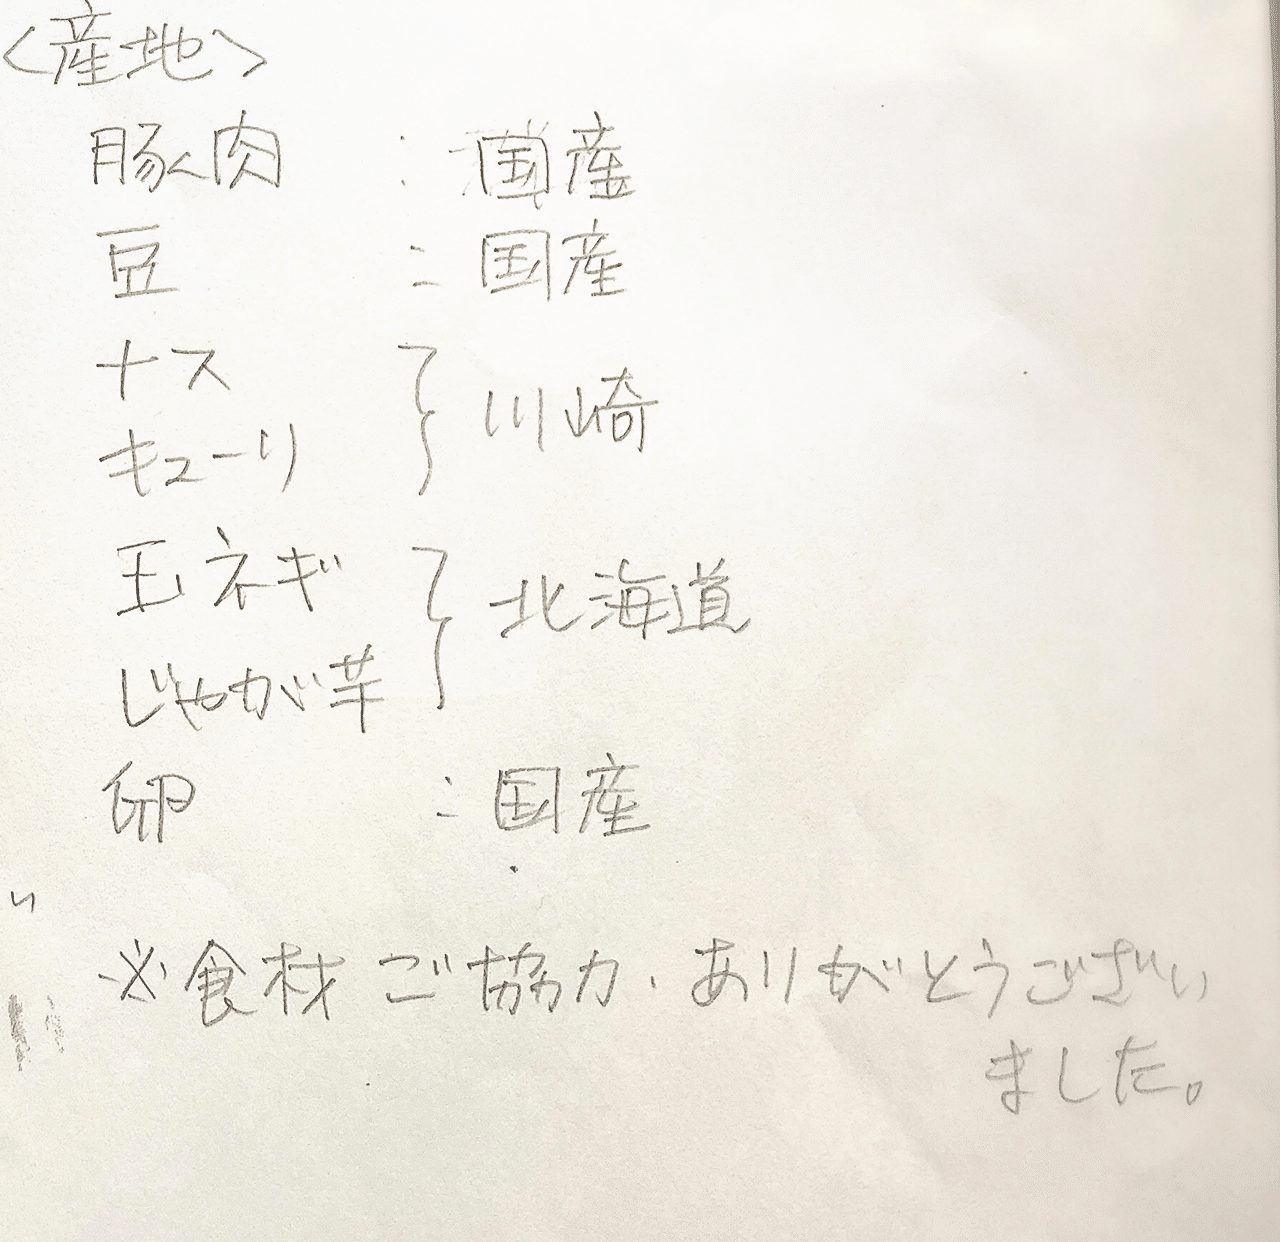 <産地>
豚肉 : 国産
豆 : 国産
ナス
キューリ } 川崎
玉ネギ
じゃが芋 } 北海道
卵 : 国産
※食材ご協力、ありがとうござい
ました。